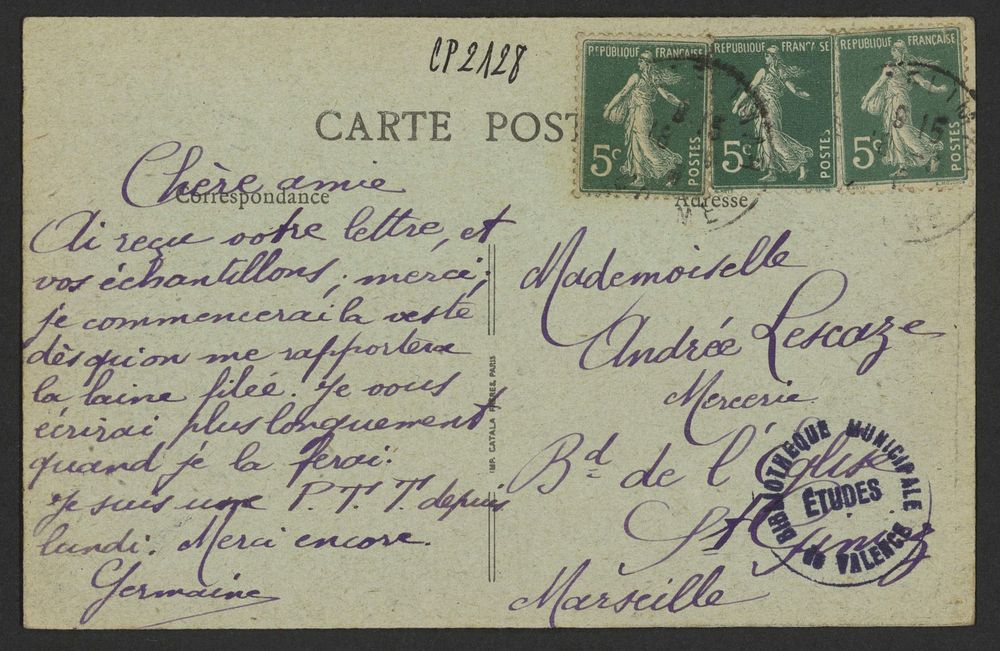 CP2128
CARTE POST
REPUBLIQUE FRANÇAISE
5c POSTES
REPUBLIQUE FRANÇAISE
5c POSTES
REPUBLIQUE FRANÇAISE
5c POSTES
8 15
9 15
ME
Correspondance
Adresse
Chère amie
Ai reçu votre lettre, et
vos échantillons; merci;
je commencerai la veste
dès qu'on me rapportera
la laine filée. Je vous
écrirai plus longuement
quand je la ferai.
Je suis une P.T.T. depuis
lundi. Merci encore.
Germaine
IMP. CATALA FRERES, PARIS
Mademoiselle
Andrée Lescaze
Mercerie
Bd de l'Eglise
St Giniez
Marseille
BIBLIOTHEQUE MUNICIPALE
ETUDES
DE VALENCE